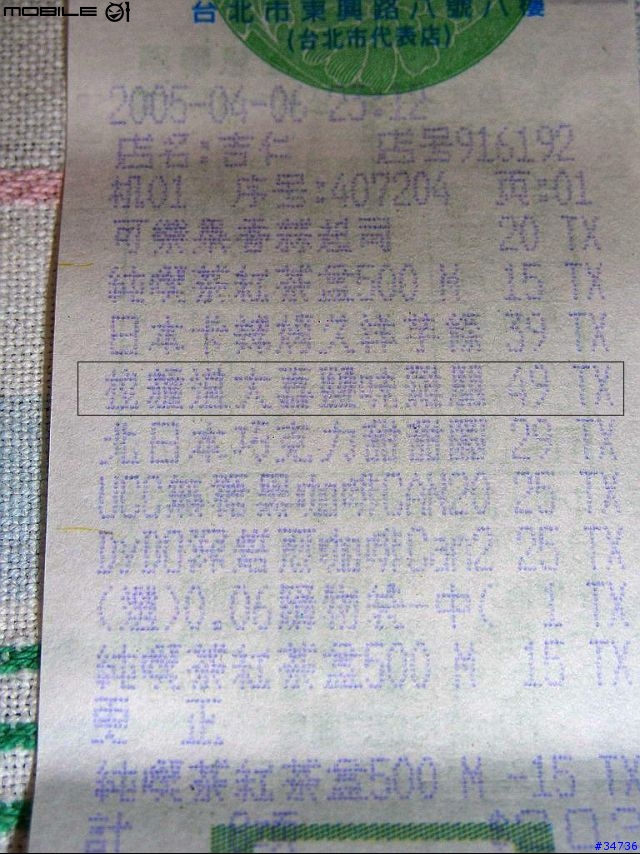 MOBILE 01
台北市東興路八號八樓
(台北市代表店)
2005-04-06 23:12
店名:吉仁 店号916192
机01 序号:407204 頁:01
可樂果香蒜起司 20 TX
純喫茶紅茶盒500 M 15 TX
日本卡 久洋芋條 39 TX
大 味 49 TX
北日本巧克力甜甜圈 29 TX
UCC無糖黑咖啡CAN20 25 TX
DyDO深焙煎咖啡Can2 25 TX
(還)0.06購物袋-中( 1 TX
純喫茶紅茶盒500 M 15 TX
更 正
純喫茶紅茶盒500 M -15 TX
計
#34736